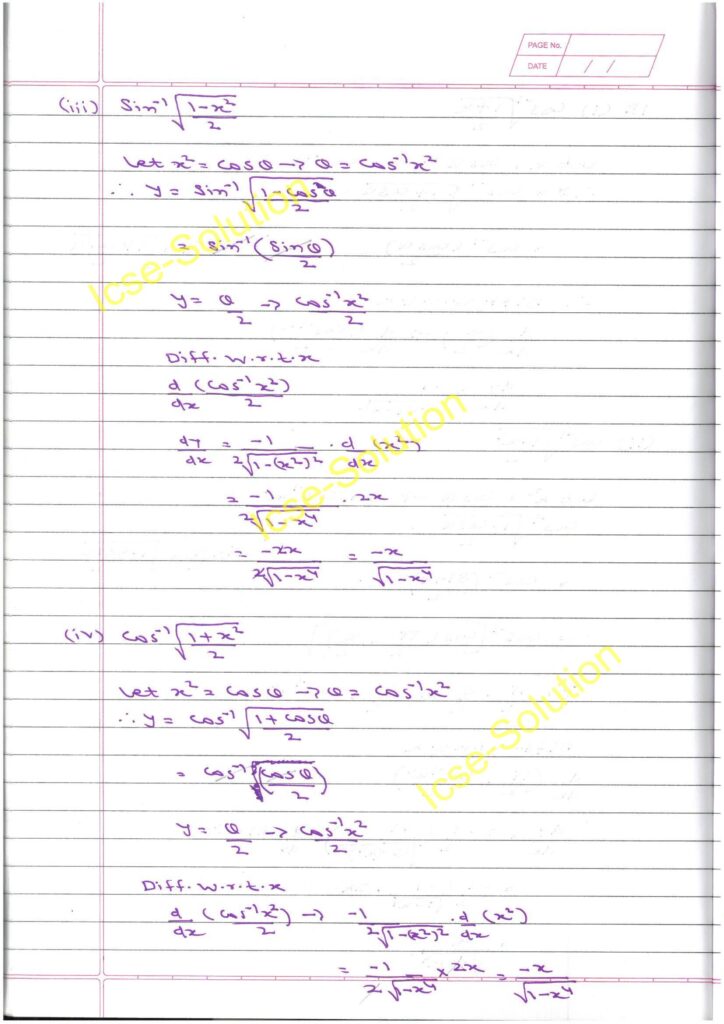 PAGE No.
DATE / /
(iii) Sin⁻¹ √(1-x²/2)
Let x² = cosθ → θ = cos⁻¹x²
∴ y = Sin⁻¹ √(1-cosθ/2)
= Sin⁻¹ (Sinθ/2)
y = θ/2 → cos⁻¹x²/2
Diff. w.r.t.x
d/dx (cos⁻¹x²/2)
dy/dx = -1/2√1-(x²)² · d/dx (x²)
= -1/2√1-x⁴ · 2x
= -2x/2√1-x⁴ = -x/√1-x⁴
(iv) cos⁻¹ √(1+x²/2)
Let x² = cosθ → θ = cos⁻¹x²
∴ y = cos⁻¹ √(1+cosθ/2)
= cos⁻¹ (cosθ/2)
y = θ/2 → cos⁻¹x²/2
Diff. w.r.t.x
d/dx (cos⁻¹x²/2) → -1/2√1-(x²)² · d/dx (x²)
= -1/2√1-x⁴ × 2x = -x/√1-x⁴
Icse-Solution
Icse-Solution
Icse-Solution